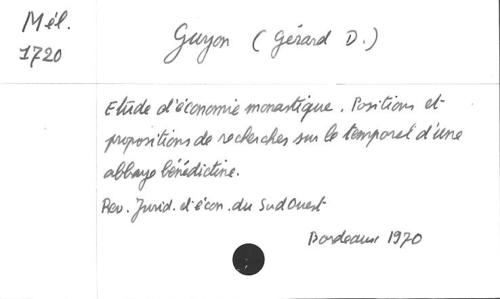 Mél.
1720
Guyon (Gérard D.)
Etude d'économie monastique. Positions et
propositions de recherches sur le temporel d'une
abbaye bénédictine.
Rev. Jurid. et écon. du Sud Ouest
Bordeaux 1970